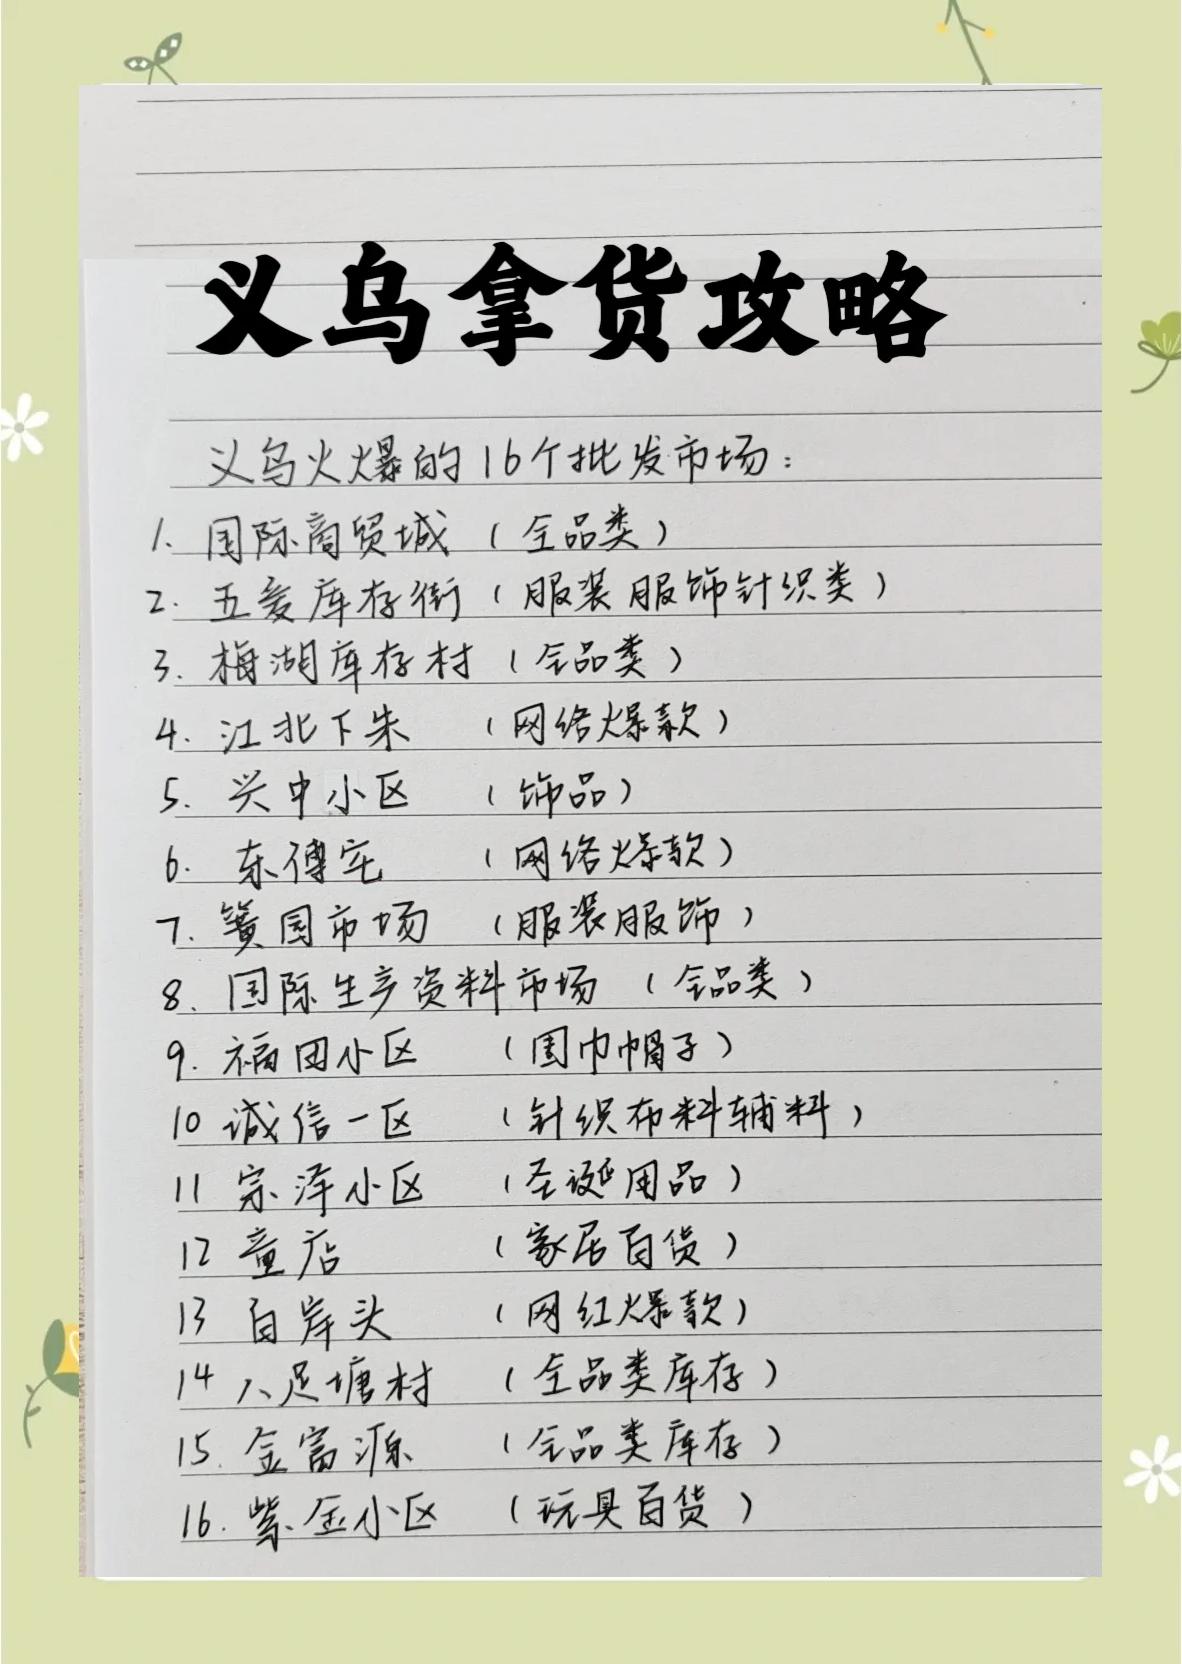 义乌拿货攻略
义乌火爆的16个批发市场：
1. 国际商贸城（全品类）
2. 五爱库存街（服装服饰针织类）
3. 梅湖库存村（全品类）
4. 江北下朱（网络爆款）
5. 兴中小区（饰品）
6. 东傅宅（网络爆款）
7. 簧园市场（服装服饰）
8. 国际生产资料市场（全品类）
9. 福田小区（围巾帽子）
10 诚信一区（针织布料辅料）
11 宗泽小区（圣诞用品）
12 童店（家居百货）
13 白岸头（网红爆款）
14 八足塘村（全品类库存）
15. 金富源（全品类库存）
16. 紫金小区（玩具百货）